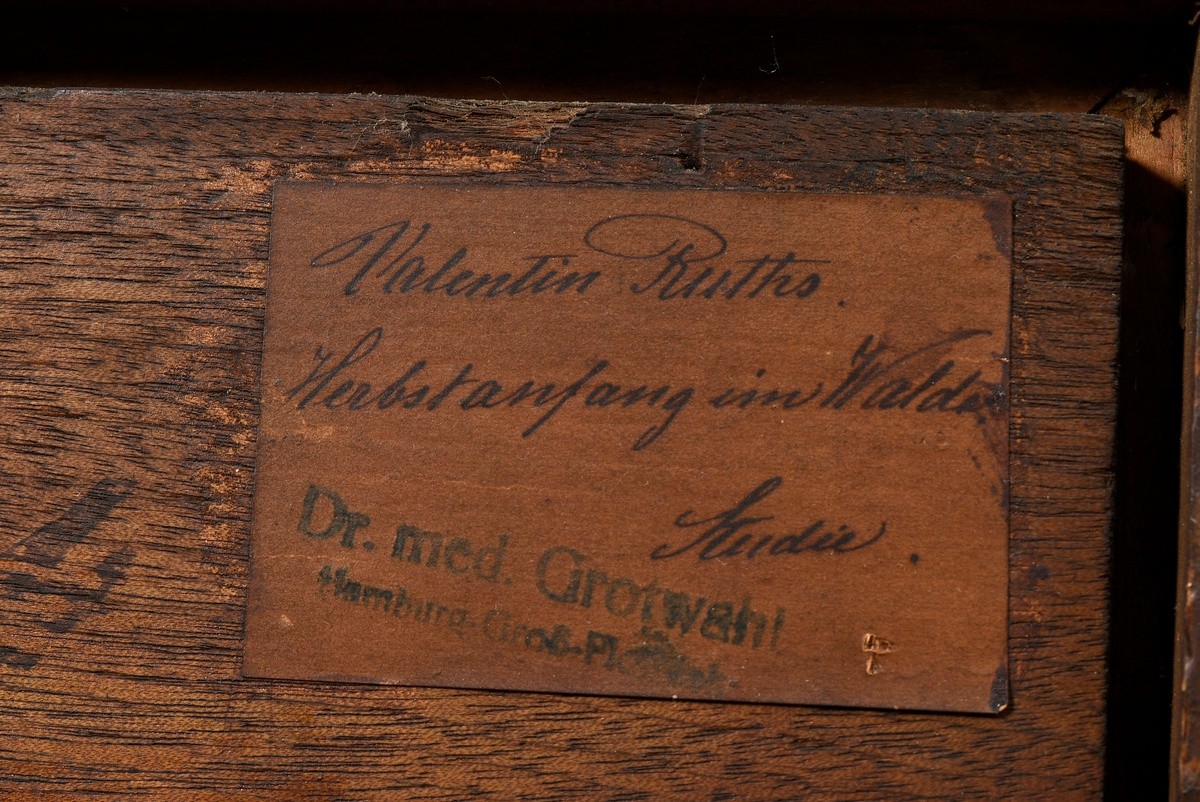 Valentin Ruths.
Herbstanfang im Walde
Studie.
Dr. med. Grotwahl
Hamburg-Groß-Flottbek